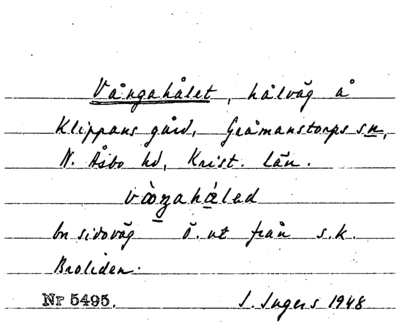 Vångahålet, hålväg å
Klippans gård, Gråmanstorps sn,
N. Åsbo hd, Krist. län.
vàŋahǻled
en sidoväg ö. ut från s.k.
Broliden.
Nr 5495. I. Ingers 1948